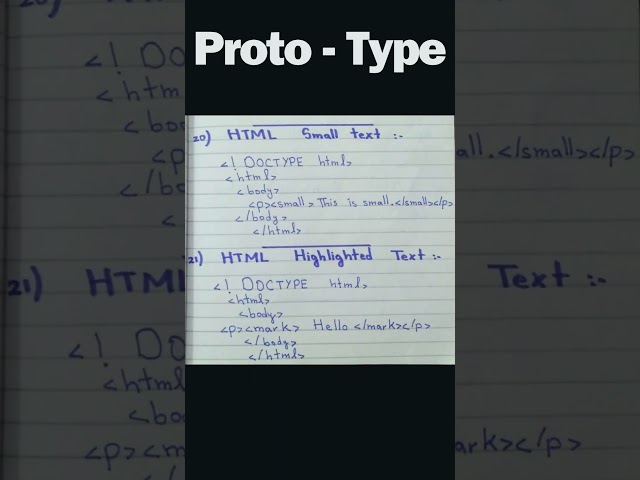 Proto - Type
20) HTML Small text :-
<! DOCTYPE html>
<html>
<body>
<p><small> This is small.</small></p>
</body>
</html>
21) HTML Highlighted Text :-
<! DOCTYPE html>
<html>
<body>
<p><mark> Hello </mark></p>
</body>
</html>